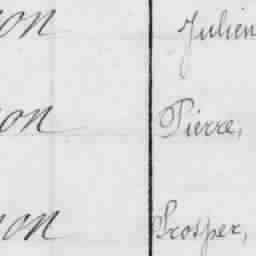 on Julien
on Pierre,
on Prosper,